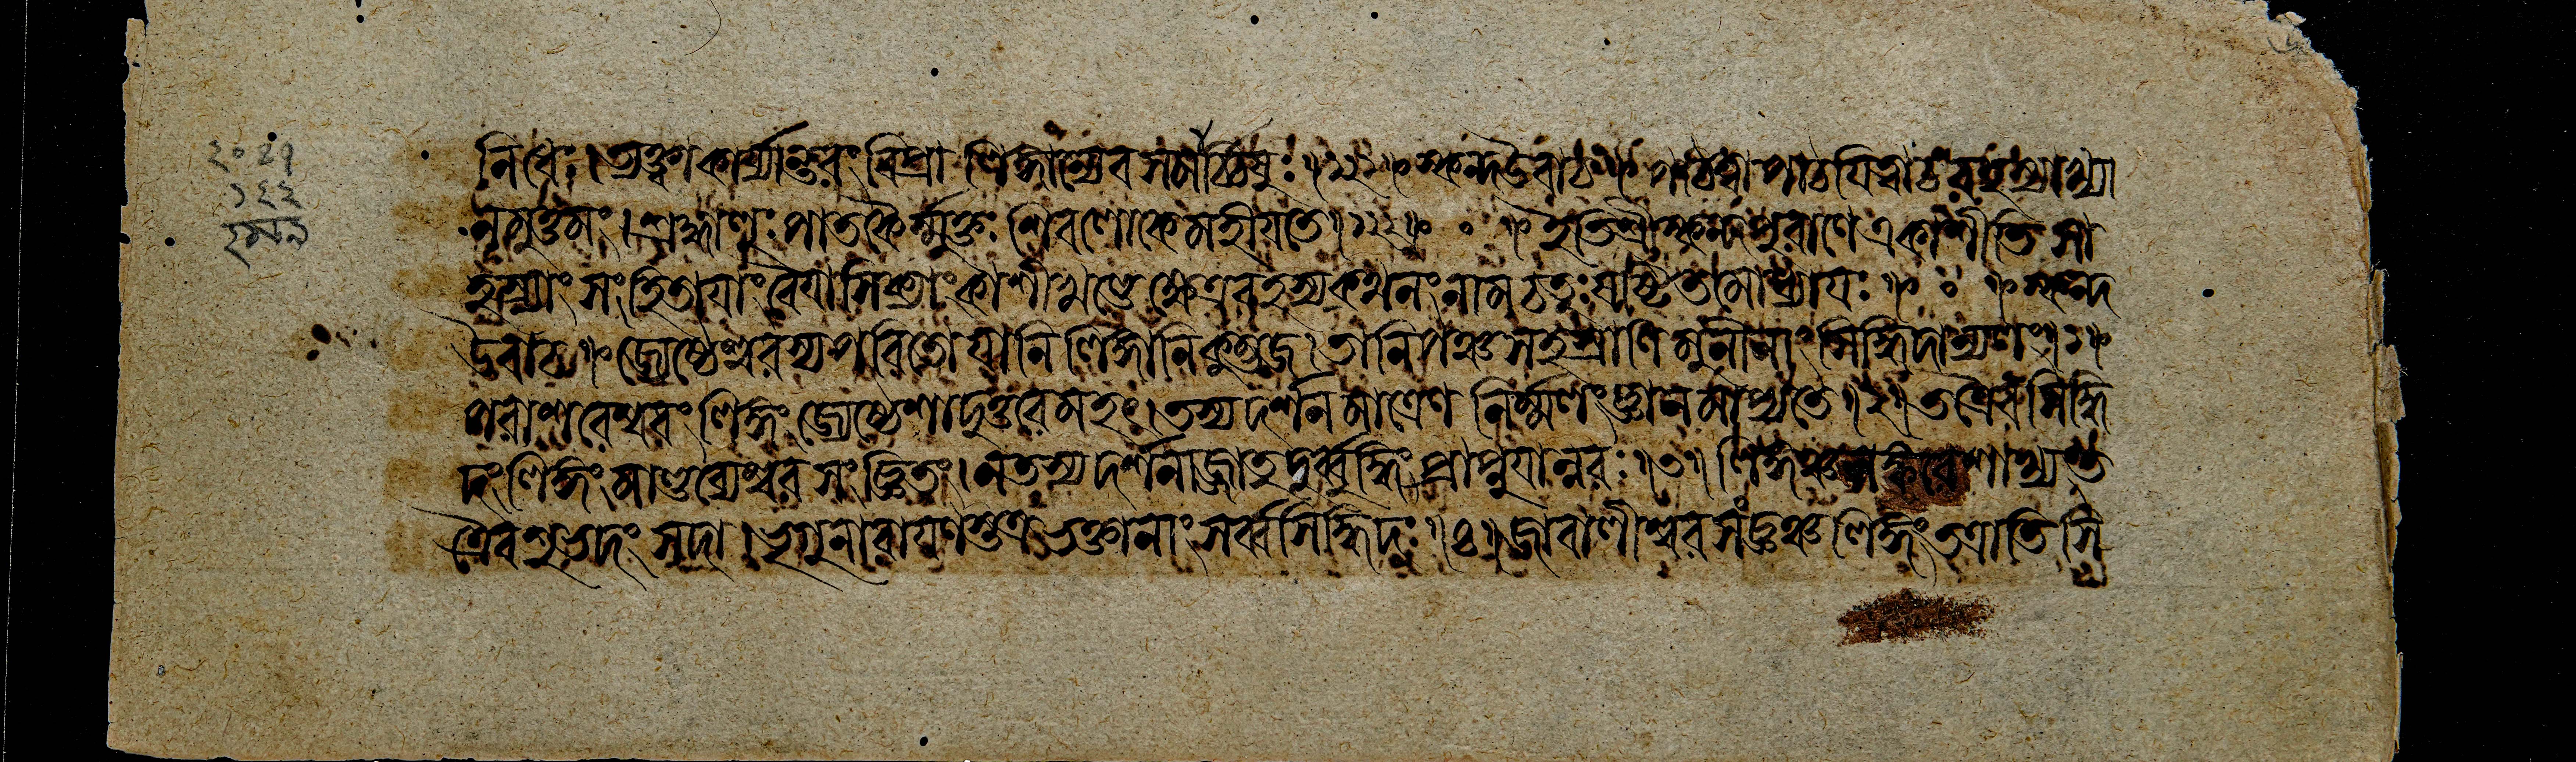 ২০২৭
১২২
নিধেঃ। ত্যক্ত্বা কার্য্যান্তরং বিপ্রা লিঙ্গান্যেব সমর্চ্চিষুঃ॥ ॥ স্কন্দ উবাচ॥ পঠিত্বা পাঠয়িত্বা
নমুত্তমং। শ্রদ্ধালুঃ পাতকৈর্ম্মুক্তঃ শিবলোকে মহীয়তে॥ ॥ ॰ ॥ ইতি শ্রীস্কন্দপুরাণে একাশীতি সা
হস্র্যাং সংহিতায়াং বৈয়াসিক্যাং কাশীখণ্ডে ক্ষেত্ররহস্যকথনং নাম চতুঃষষ্টিতমোধ্যায়ঃ॥ ॰ ॥ স্কন্দ
উবাচ॥ জ্যেষ্ঠেশ্বরস্য পরিতো যানি লিঙ্গানি কুম্ভজ। তানি পঞ্চসহস্রাণি মুনীনাং সিদ্ধিদান্যলং॥১॥
পরাশরেশ্বরং লিঙ্গং জ্যেষ্ঠেশাদুত্তরে মহৎ। তস্য দর্শনমাত্রেণ নির্ম্মলং জ্ঞানমাপ্যতে॥২॥ তত্রৈব সিদ্ধি
দং লিঙ্গং মাণ্ডব্যেশ্বর সংজ্ঞিতং। ন তস্য দর্শনাজ্জাতু দুর্ব্বুদ্ধিং প্রাপ্নুয়ান্নরঃ॥৩॥ লিঙ্গঞ্চ শঙ্করেশাখ্যং ত
ত্রৈব শুভদং সদা। ভৃগুনারায়ণস্তত্র ভক্তানাং সর্ব্বসিদ্ধিদঃ॥৪॥ জাবালীশ্বর সংজ্ঞঞ্চ লিঙ্গং তত্রাতিসি